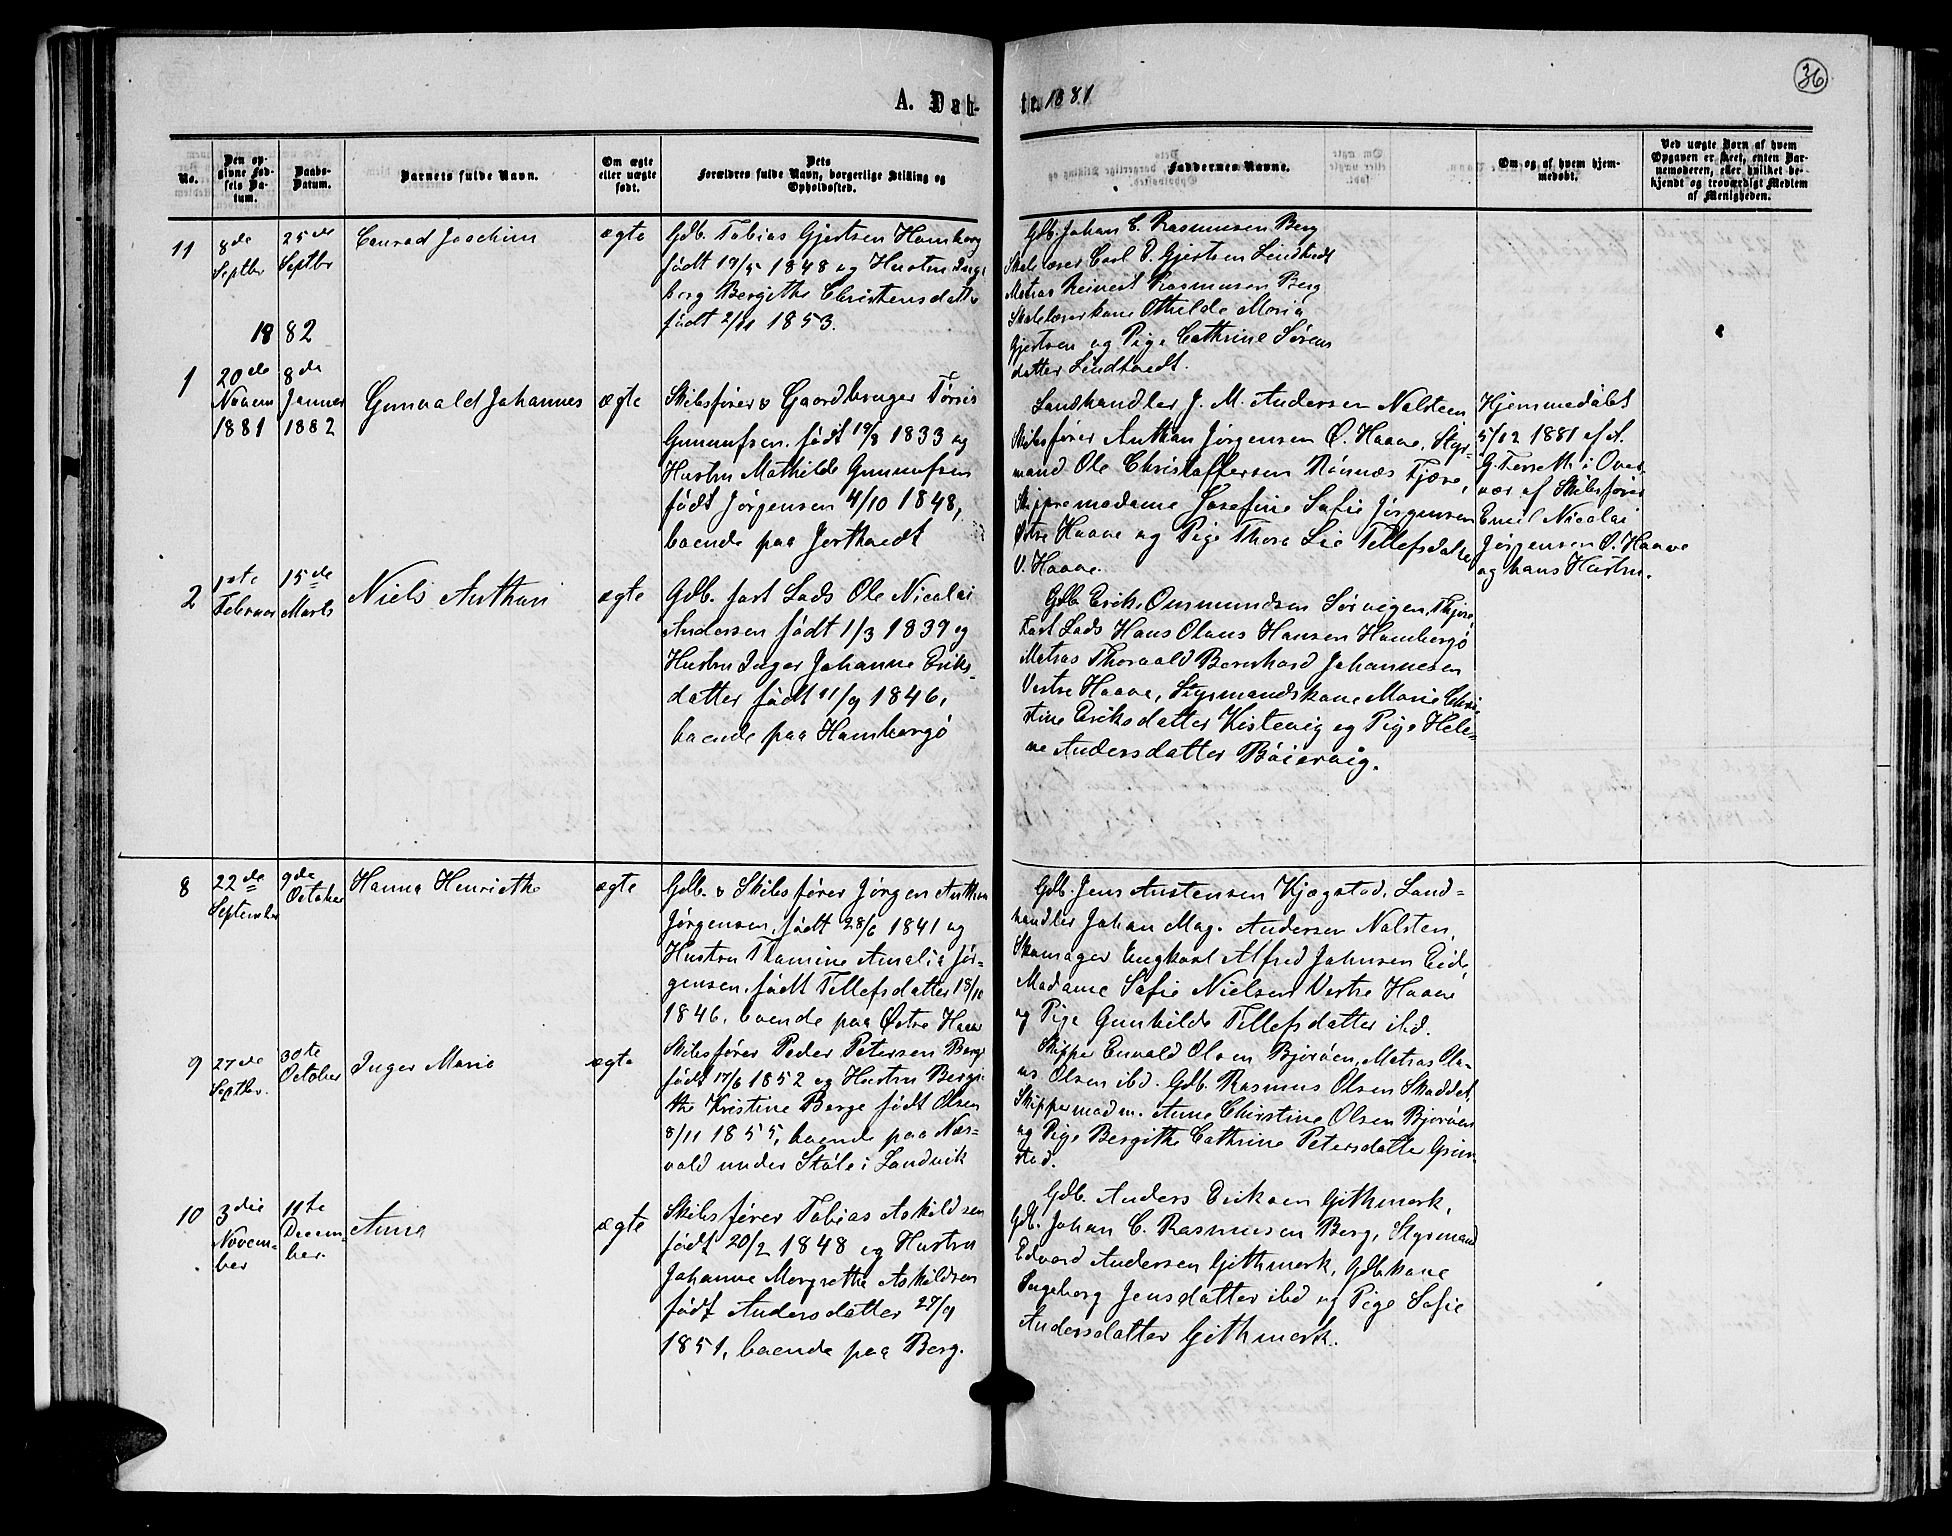 A. Døb-
te. 1881
36
No.
Den op-
givne Fød-
sels Da-
tum.
Daabs-
Datum.
Barnets fulde Navn.
Om ægte
eller uægte
født.
Dets
Forældres fulde Navn, borgerlige Stilling og
Opholdssted.
Faddernes Navne.
Om og af hvem hjem-
medøbt.
Ved uægte Børn af hvem
Opgaven er skeet, enten Bar-
nemoderen, eller hvilket be-
kjendt og troværdigt Medlem
af Menigheden.
11
8de
Septbr
25de
Septbr
Conrad Joachim
ægte
Gdb. Tobias Gjertsen Homborg
født 19/5 1848 og Hustru Inge
borg Bergithe Christensdatter
født 2/11 1853.
Gdb. Johan C. Rasmussen Berg
Skolelærer Carl O. Gjertsen Lindtvedt
Matros Reinert Rasmussen Berg
Skolelærerkone Othilde Maria
Gjertsen og Pige Cathrine Sørens
datter Lindtvedt.
1882
1
20de
Novem
1881
8de
Januar
1882
Gunvald Johannes
ægte
Skibsfører & Gaardbruger Tørris
Gunnufsen, født 19/8 1833 og
Hustru Mathilde Gunnufsen
født Jørgensen 4/10 1848,
boende paa Jortvedt
Landhandler J. M. Andersen Nalsteen
Skibsfører Anthon Jørgensen Ø. Haave, Styr-
mand Ole Christoffersen Rønnes Fjære,
Skippermadame Josefine Sofie Jørgensen
Østre Haave og Pige Thora Lie Tellefsdatter
V. Haave.
Hjemmedøbt
5/12 1881 af A.
G. Terreth i Over
vær af Skibsfører
Emil Nicolai
Jørgensen Ø. Haave
og hans Hustru.
2
1ste
Februar
15de
Marts
Niels Anthon
ægte
Gdb. fast Lods Ole Nicolai
Andersen født 1/3 1839 og
Hustru Inger Johanne Eriks-
datter født 11/9 1846,
boende paa Homborgø
Gdb. Erik Ommundsen Sørvigen, Fjære,
Fast Lods Hans Olaus Hansen Homborgø
Matros Thorvald Bernhard Johannesen
Vestre Haave, Styrmandskone Marie Chri-
stine Eriksdatter Kistevig og Pige Hele-
ne Andersdatter Bøiervig.
8
22de
September
9de
October
Hanna Henriethe
ægte
Gdb. & Skibsfører Jørgen Anthon
Jørgensen, født 28/6 1841 og
Hustru Thomine Amalia Jør-
gensen, født Tellefsdatter 13/10
1846, boende paa Østre Haave
Gdb. Jens Austensen Kjægstad, Land-
handler Johan Mag. Andersen Nalsten,
Skomager Engkort Alfred Johnsen Eide,
Madame Sofie Nielsen Vestre Haave
og Pige Gunhilde Tellefsdatter ibd.
9
27de
Septbr.
30te
October
Inger Marie
ægte
Skibsfører Peder Petersen Berge
født 17/6 1852 og Hustru Bergi-
the Kristine Berge født Olsen
8/11 1855, boende paa Næs-
vold under Støle i Landvik
Skipper Envald Olsen Bjorøen, Matros Ola-
us Olsen ibd. Gdb. Rasmus Olsen Skaddet
Skippermadm. Anne Christine Olsen Bjorøen
og Pige Bergithe Cathrine Petersdatter Grim-
stad.
10
3die
Novem-
ber
11te
Decem-
ber.
Anna
ægte
Skibsfører Tobias Askildsen
født 20/2 1848 og Hustru
Johanne Morgrethe Askildsen
født Andersdatter 27/9
1851, boende paa Berg.
Gdb. Anders Eriksen Githmark,
Gdb. Johan C. Rasmussen Berg, Styrmand
Edvard Andersen Githmark, Gdbkone
Ingeborg Jensdatter ibd og Pige Sofie
Andersdatter Githmark.